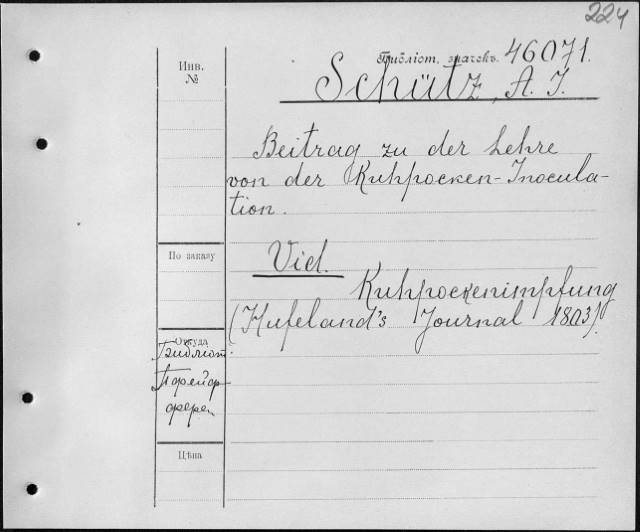 224
Инв.
№
Библіот. значекъ. 46071.
Schütz, A. J.
Beitrag zu der Lehre
von der Kuhpocken-Inocula-
tion.
По заказу
Vid.
Kuhpockenimpfung
(Hufeland's Journal 1803).
Откуда
Библіот.
Цѣна